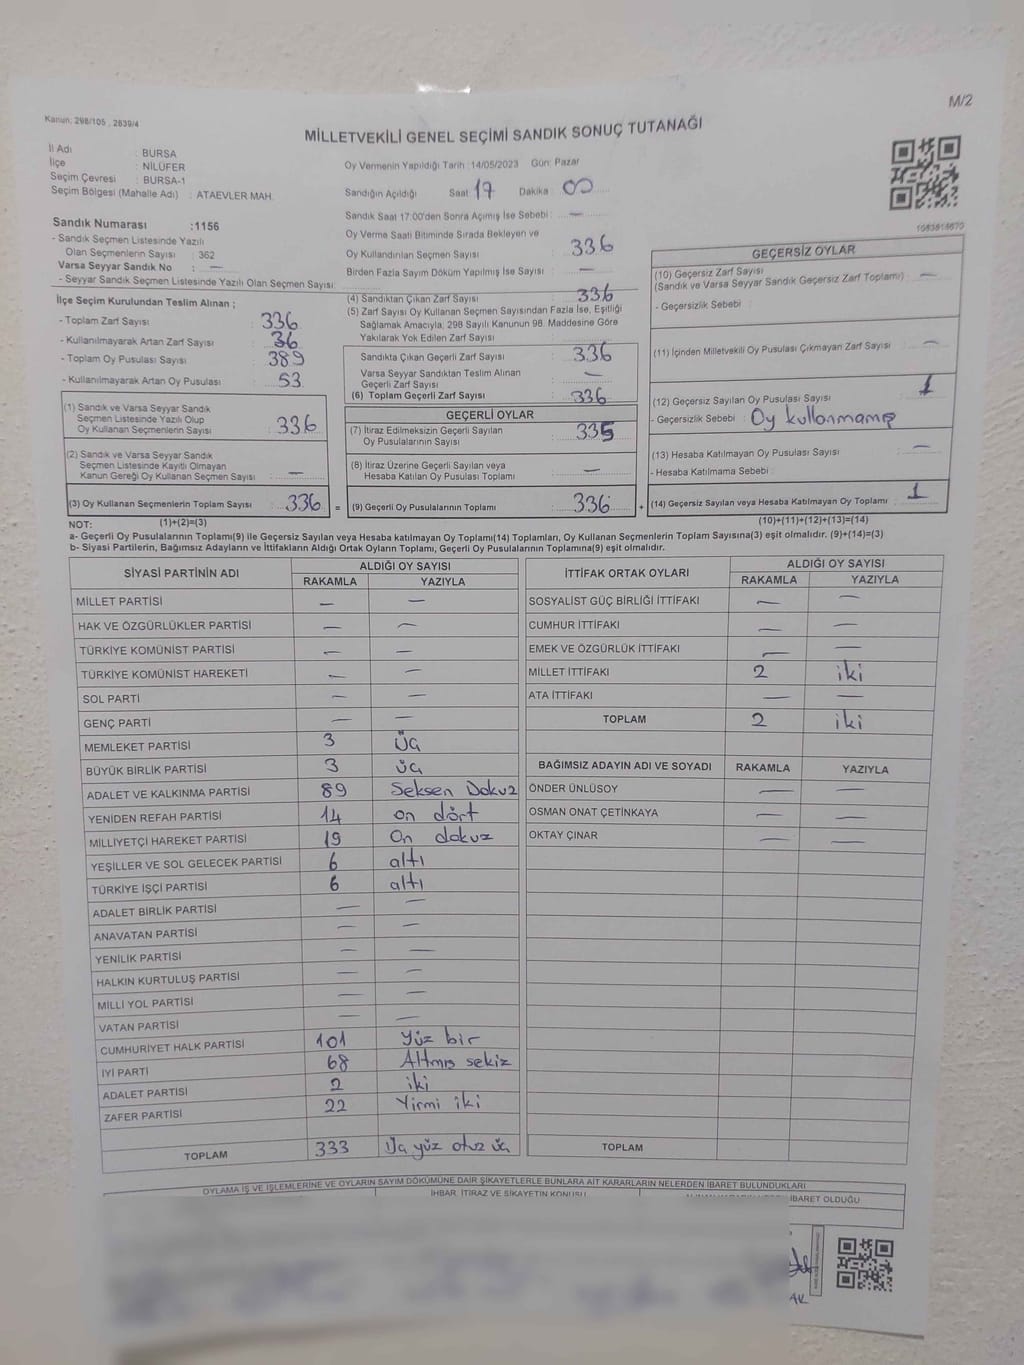 M/2
Kanun: 298/105 , 2839/4
MİLLETVEKİLİ GENEL SEÇİMİ SANDIK SONUÇ TUTANAĞI
İl Adı : BURSA
İlçe : NİLÜFER
Seçim Çevresi : BURSA-1
Seçim Bölgesi (Mahalle Adı) : ATAEVLER MAH.
Oy Vermenin Yapıldığı Tarih :14/05/2023 Gün: Pazar
Sandığın Açıldığı Saat 17 Dakika : 00
Sandık Saat 17:00'den Sonra Açımış İse Sebebi : —
Oy Verme Saati Bitiminde Sırada Bekleyen ve
Oy Kullandırılan Seçmen Sayısı 336
Birden Fazla Sayım Döküm Yapılmış İse Sayısı : —
Sandık Numarası :1156
- Sandık Seçmen Listesinde Yazılı
Olan Seçmenlerin Sayısı : 362
Varsa Seyyar Sandık No : —
- Seyyar Sandık Seçmen Listesinde Yazılı Olan Seçmen Sayısı:
İlçe Seçim Kurulundan Teslim Alınan ;
- Toplam Zarf Sayısı : 336
- Kullanılmayarak Artan Zarf Sayısı : 36
- Toplam Oy Pusulası Sayısı : 389
- Kullanılmayarak Artan Oy Pusulası : 53
(1) Sandık ve Varsa Seyyar Sandık
Seçmen Listesinde Yazılı Olup
Oy Kullanan Seçmenlerin Sayısı : 336
(2) Sandık ve Varsa Seyyar Sandık
Seçmen Listesinde Kayıtlı Olmayan
Kanun Gereği Oy Kullanan Seçmen Sayısı : —
(3) Oy Kullanan Seçmenlerin Toplam Sayısı : 336 =
(1)+(2)=(3)
(4) Sandıktan Çıkan Zarf Sayısı : 336
(5) Zarf Sayısı Oy Kullanan Seçmen Sayısından Fazla İse, Eşitliği
Sağlamak Amacıyla; 298 Sayılı Kanunun 98. Maddesine Göre
Yakılarak Yok Edilen Zarf Sayısı :
Sandıkta Çıkan Geçerli Zarf Sayısı : 336
Varsa Seyyar Sandıktan Teslim Alınan
Geçerli Zarf Sayısı : —
(6) Toplam Geçerli Zarf Sayısı : 336
GEÇERLİ OYLAR
(7) İtiraz Edilmeksizin Geçerli Sayılan
Oy Pusulalarının Sayısı : 335
(8) İtiraz Üzerine Geçerli Sayılan veya
Hesaba Katılan Oy Pusulası Toplamı : —
(9) Geçerli Oy Pusulalarının Toplamı : 336 +
GEÇERSİZ OYLAR
(10) Geçersiz Zarf Sayısı
(Sandık ve Varsa Seyyar Sandık Geçersiz Zarf Toplamı) : —
- Geçersizlik Sebebi :
(11) İçinden Milletvekili Oy Pusulası Çıkmayan Zarf Sayısı : —
(12) Geçersiz Sayılan Oy Pusulası Sayısı : 1
- Geçersizlik Sebebi : Oy kullanmamış
(13) Hesaba Katılmayan Oy Pusulası Sayısı : —
- Hesaba Katılmama Sebebi :
(14) Geçersiz Sayılan veya Hesaba Katılmayan Oy Toplamı : 1
(10)+(11)+(12)+(13)=(14)
NOT:
a- Geçerli Oy Pusulalarının Toplamı(9) ile Geçersiz Sayılan veya Hesaba katılmayan Oy Toplamı(14) Toplamları, Oy Kullanan Seçmenlerin Toplam Sayısına(3) eşit olmalıdır. (9)+(14)=(3)
b- Siyasi Partilerin, Bağımsız Adayların ve İttifakların Aldığı Ortak Oyların Toplamı, Geçerli Oy Pusulalarının Toplamına(9) eşit olmalıdır.
SİYASİ PARTİNİN ADI ALDIĞI OY SAYISI
RAKAMLA YAZIYLA
MİLLET PARTİSİ — —
HAK VE ÖZGÜRLÜKLER PARTİSİ — —
TÜRKİYE KOMÜNİST PARTİSİ — —
TÜRKİYE KOMÜNİST HAREKETİ — —
SOL PARTİ — —
GENÇ PARTİ — —
MEMLEKET PARTİSİ 3 Üç
BÜYÜK BİRLİK PARTİSİ 3 üç
ADALET VE KALKINMA PARTİSİ 89 Seksen Dokuz
YENİDEN REFAH PARTİSİ 14 on dört
MİLLİYETÇİ HAREKET PARTİSİ 19 On dokuz
YEŞİLLER VE SOL GELECEK PARTİSİ 6 altı
TÜRKİYE İŞÇİ PARTİSİ 6 altı
ADALET BİRLİK PARTİSİ — —
ANAVATAN PARTİSİ — —
YENİLİK PARTİSİ — —
HALKIN KURTULUŞ PARTİSİ — —
MİLLİ YOL PARTİSİ — —
VATAN PARTİSİ — —
CUMHURİYET HALK PARTİSİ 101 Yüz bir
İYİ PARTİ 68 Altmış sekiz
ADALET PARTİSİ 2 iki
ZAFER PARTİSİ 22 Yirmi iki
TOPLAM 333 Üç yüz otuz üç
İTTİFAK ORTAK OYLARI ALDIĞI OY SAYISI
RAKAMLA YAZIYLA
SOSYALİST GÜÇ BİRLİĞİ İTTİFAKI — —
CUMHUR İTTİFAKI — —
EMEK VE ÖZGÜRLÜK İTTİFAKI — —
MİLLET İTTİFAKI 2 iki
ATA İTTİFAKI — —
TOPLAM 2 iki
BAĞIMSIZ ADAYIN ADI VE SOYADI RAKAMLA YAZIYLA
ÖNDER ÜNLÜSOY — —
OSMAN ONAT ÇETİNKAYA — —
OKTAY ÇINAR — —
TOPLAM
OYLAMA İŞ VE İŞLEMLERİNE VE OYLARIN SAYIM DÖKÜMÜNE DAİR ŞİKAYETLERLE BUNLARA AİT KARARLARIN NELERDEN İBARET BULUNDUKLARI
İHBAR, İTİRAZ VE ŞİKAYETİN KONUSU
İBARET OLDUĞU